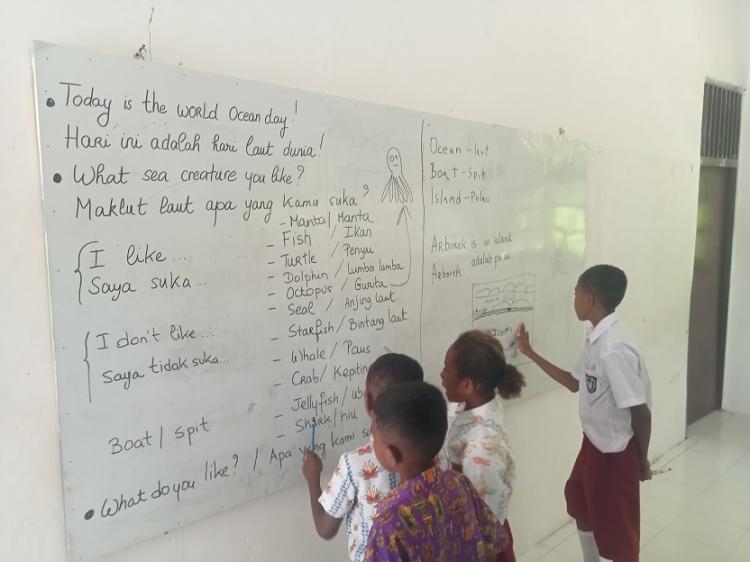 • Today is the world Ocean day!
Hari ini adalah hari laut dunia!
• What sea creature you like?
Maklut laut apa yang kamu suka?
I like...
Saya suka...
I don't like...
Saya tidak suka...
- Manta/ Manta
- Fish / Ikan
- Turtle / Penyu
- Dolphin / Lumba lumba
- Octopus / Gurita
- Seal / Anjing laut
- Starfish / Bintang laut
- Whale / Paus
- Crab/
- Jellyfish /
- Shark/ hiu
Boat / spit
• What do you like? / Apa yang kamu
Ocean - laut
Boat - spit
Island - Pulau
Arborek is an island
Arborek adalah